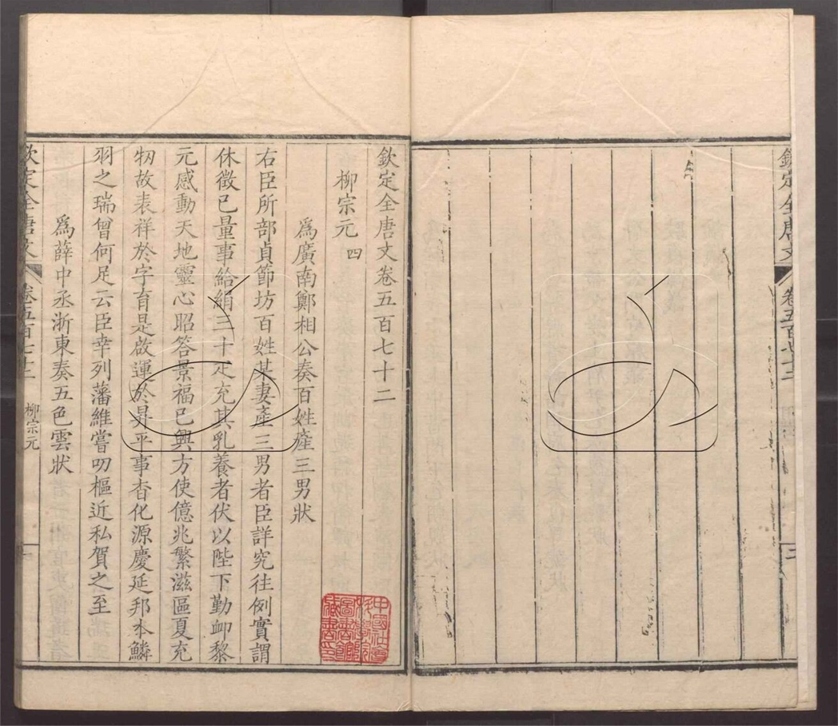 欽定全唐文
欽定全唐文卷五百七十二
柳宗元 四
爲廣南鄭相公奏百姓產三男狀
右臣所部貞節坊百姓某妻產三男者臣詳究往例實謂
休徵已量事給絹三十疋充其乳養者伏以陛下勤卹黎
元感動天地靈心昭答景福已興方使億兆繁滋區夏充
牣故表祥於字育是啟運於昇平事杳化源慶延邦本鱗
羽之瑞曾何足云臣幸列藩維嘗叨樞近私賀之至
爲薛中丞浙東奏五色雲狀
欽定全唐文 卷五百七十二 柳宗元 一